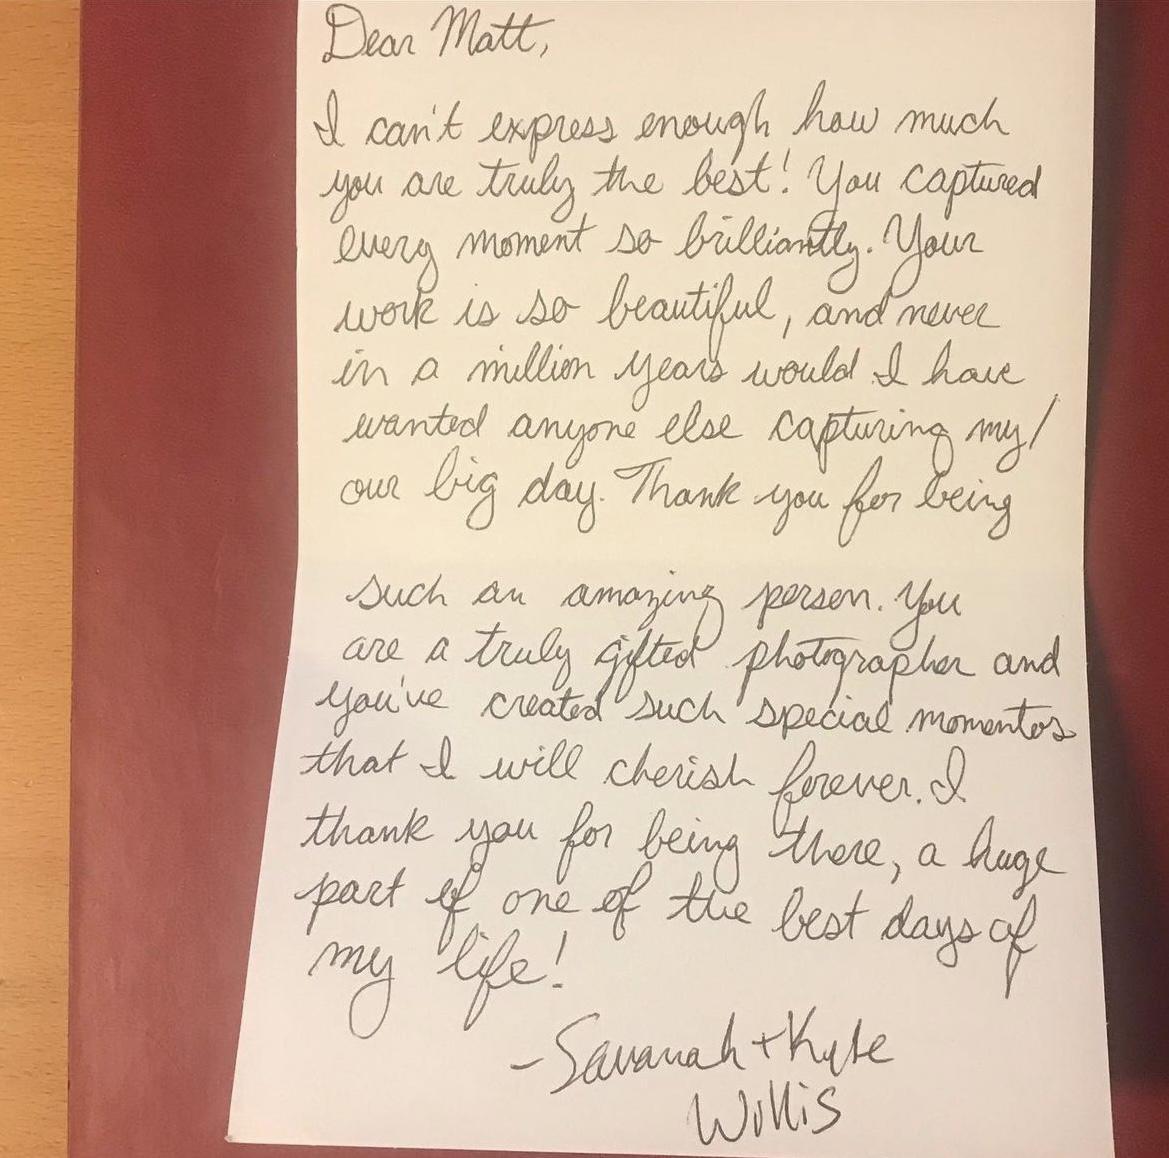 Dear Matt,
I can't express enough how much
you are truly the best! You captured
every moment so brilliantly. Your
work is so beautiful, and never
in a million years would I have
wanted anyone else capturing my/
our big day. Thank you for being
such an amazing person. You
are a truly gifted photographer and
you've created such special momentos
that I will cherish forever. I
thank you for being there, a huge
part of one of the best days of
my life!
-Savanah + Kyle
Willis